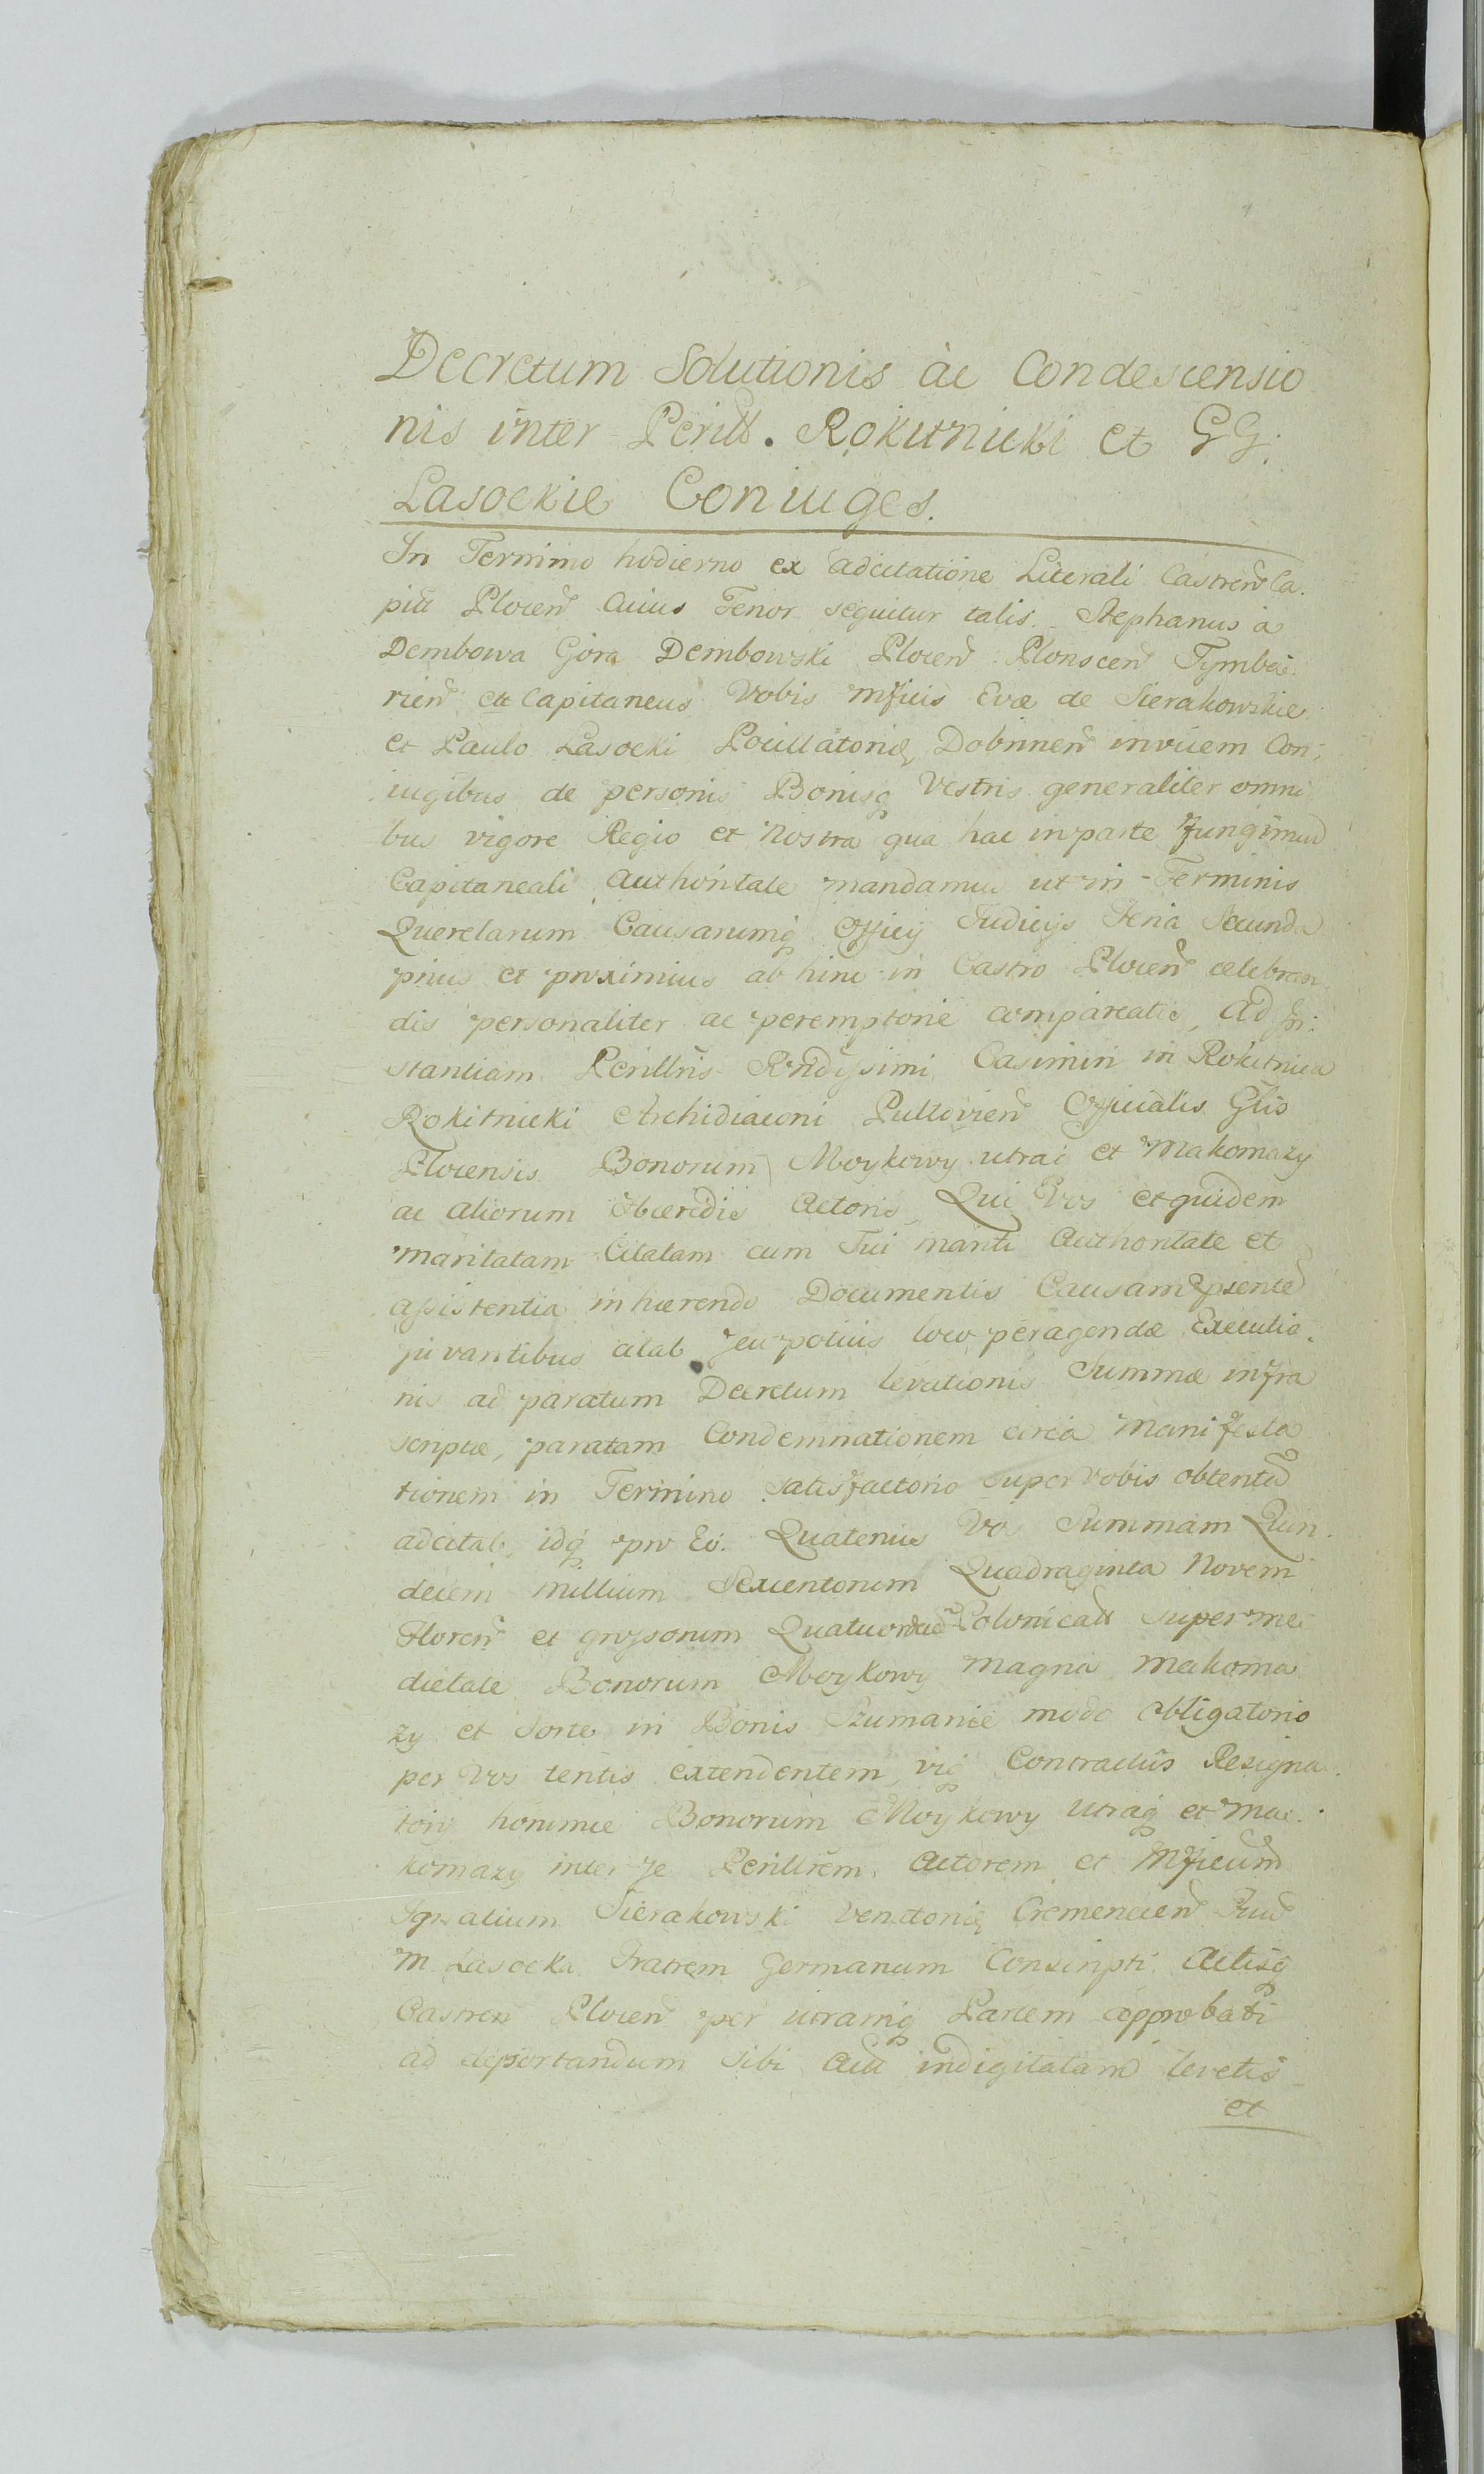 Decretum Solutionis àc Condescensio
nis inter Perill. Rokitnicki et GG.
Lasockie Coniuges.
In Termino hodierno ex adcitatione Literali Castren Ca.
plii Plocen Cuius Tenor sequitur talis. Stephanus à
Dembowa Gòra Dembowski Plocen Plonscen Tymba
rien ett Capitaneus Vobis Mficis Evæ de Sierakowskie
et Paulo Lasocki Pocillatoriæ Dobrinen invicem Con,
iugibus de personis Bonisq Vestris generaliter omni
bus vigore Regio et Nostra qua hac in parte fungimur
Capitaneali Authoritate mandamus ut in Terminis
Querelarum Causarumq Officij Judicijs Feria Secunda
prius et proximius ab hinc in Castro Plocen celebran
dis personaliter ac peremptorie compareatis, Ad In:
stantiam Perillris Rndissimi Casimiri in Rokitnica
Rokitnicki Archidiaconi Pultovien Officialis Glis
Plocensis Bonorum Moykowy utraq et Makomazy
ac aliorum Hæredis Actoris, Qui Vos et quidem
maritatam Citatam cum Tui mariti Authoritate et
assistentia inhærendo Documentis Causam psente
juvantibus citat seu potius loco peragendæ Executio.
nis ad paratum Decretum levationis Summæ infra
scriptæ, paratam Condemnationem circa Manifesta
tionem in Termino Satisfactorio super vobis obtenta
adcitat, idq pro Eo. Quatenus Vos Summam Quin.
decim Millium Sexcentorum Quadraginta Novem
Floren et grossorum Quatuordecim Polonicall super me
dietate Bonorum Moykowy Magna Makoma
zy et Sorte in Bonis Szumanie modo obligatorio
per Vos tentis extendentem, vig Contractûs Resigna.
torij hominie Bonorum Moykowy Utraq et Ma.
komazy inter se Perillrem Actorem et Mficum
Ignatium Sierakowski Venatoriæ Cremenecen
M. Lasocka Fratrem Germanum Conscripti Actisq
Castren Plocen per utramq Partem approbati
ad deportandum sibi indigitatam levetis
et